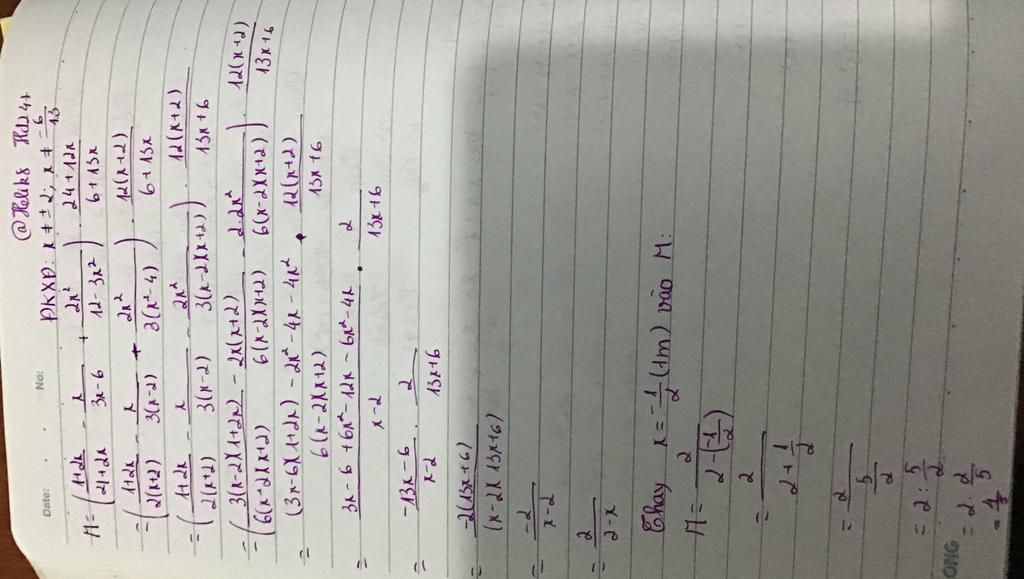 Date: No:
@Heliks Hd247
ĐKXĐ: x ≠ ±2; x ≠ -6/13
M = ( (1+2x)/(4+2x) - x/(3x-6) + 2x²/(12-3x²) ) . (24+12x)/(6+13x)
= ( (1+2x)/(2(x+2)) - x/(3(x-2)) + 2x²/(3(x²-4)) ) . 12(x+2)/(6+13x)
= ( (1+2x)/(2(x+2)) - x/(3(x-2)) - 2x²/(3(x-2)(x+2)) ) . 12(x+2)/(13x+6)
= ( 3(x-2)(1+2x)/(6(x-2)(x+2)) - 2x(x+2)/(6(x-2)(x+2)) - 2.2x²/(6(x-2)(x+2)) ) . 12(x+2)/(13x+6)
= ((3x-6)(1+2x) - 2x² - 4x - 4x²)/(6(x-2)(x+2)) . 12(x+2)/(13x+6)
= (3x - 6 + 6x² - 12x - 6x² - 4x)/(x-2) . 2/(13x+6)
= (-13x-6)/(x-2) . 2/(13x+6)
= -2(13x+6)/((x-2)(13x+6))
= -2/(x-2)
= 2/(2-x)
Thay x = -1/2 (tm) vào M:
M = 2/(2-(-1/2))
= 2/(2+1/2)
= 2/(5/2)
= 2 : 5/2
= 2 . 2/5
= 4/5
ONG